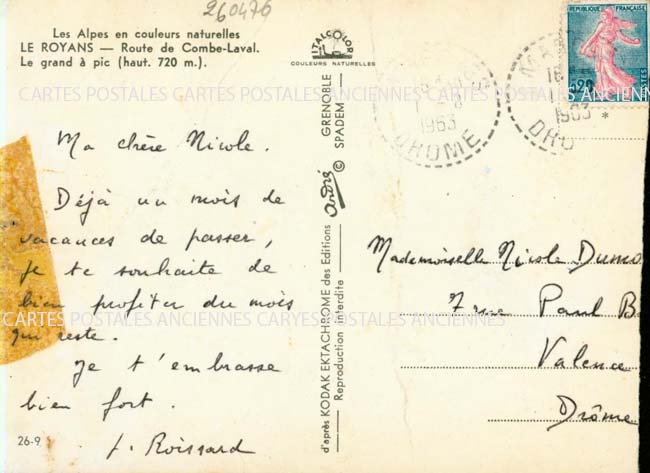 260476
Les Alpes en couleurs naturelles
LE ROYANS — Route de Combe-Laval.
Le grand à pic (haut. 720 m.).
ITALCOLOR
COULEURS NATURELLES
REPUBLIQUE FRANÇAISE
0,20
1963
DROME
1963
DRO
CARTES POSTALES ANCIENNES CARTES POSTALES ANCIENNES
Ma chère Nicole.
Déjà un mois de
vacances de passer,
je te souhaite de
bien profiter du mois
qui reste.
Je t'embrasse
bien fort.
J. Roissard
26-9
d'après KODAK EKTACHROME des Editions André © GRENOBLE
Reproduction interdite SPADEM
Mademoiselle Nicole Dumo
7 rue Paul B
Valence
Drôme
CARTES POSTALES ANCIENNES CARYES POSTALES ANCIENNES